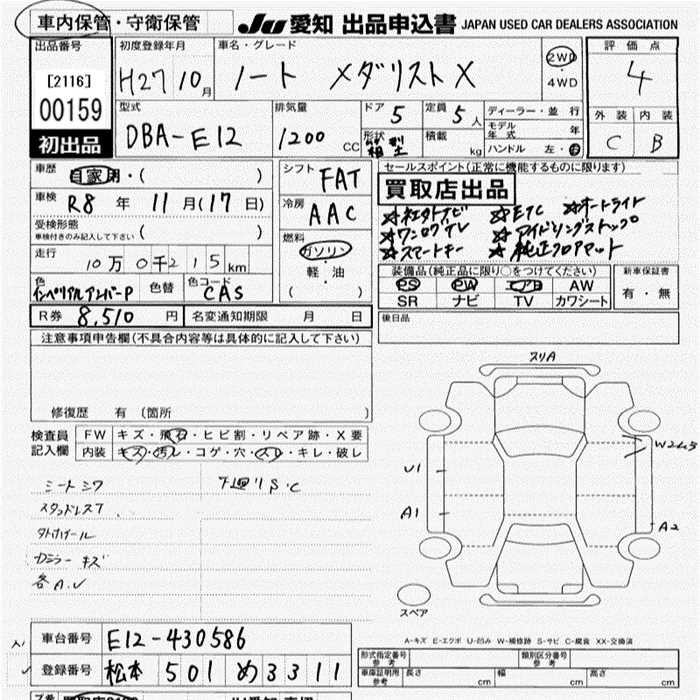 車内保管・守衛保管
JU 愛知 出品申込書 JAPAN USED CAR DEALERS ASSOCIATION
出品番号
[2116]
00159
初出品
初度登録年月
H27 10月
車名・グレード
ノート メダリストX
2WD
・
4WD
評価点
4
外装 内装
C B
型式
DBA-E12
排気量
1200 CC
ドア 5
定員 5人
形状 箱型
積載 kg
ディーラー・並行
モデル年式 年
ハンドル 左・右
車歴
自家用・( )
車検
R8 年 11月(17日)
受検形態
車検付きのみ記入して下さい ( )
走行
10万0千215km
色
インペリアルアンバーP
色替
色コード
CAS
シフト
FAT
冷房
AAC
燃料
ガソリン
・
軽・油
( )
R券 8,510 円
名変通知期限 月 日
セールスポイント(正常に機能するものに限ります)
買取店出品
☆社外ナビ ☆ETC ☆オートライト
☆ワンセグTV ☆アイドリングストップ
☆スマートキー ☆純正フロアマット
装備品(純正品に限り○をつけてください)
PS PW エアB AW
SR ナビ TV カワシート
新車保証書
有・無
後日品
注意事項申告欄(不具合内容等は具体的に記入して下さい)
修復歴 有 (箇所 )
検査員記入欄
FW キズ・飛石・ヒビ割・リペア跡・X要
内装 キズ・汚レ・コゲ・穴・スレ・キレ・破レ
シートシワ
下廻りS・C
スタッドレス7
タイヤホイール
キズ
各A.U
スリA
U1
A1
A2
スペア
A-キズ E-エクボ U-凹み W-補修跡 S-サビ C-腐食 XX-交換済
車台番号 E12-430586
登録番号 松本 501 め 3311
形式指定番号
参考
類別区分番号
参考
車庫証明用
参考
長さ cm
幅 cm
高さ cm